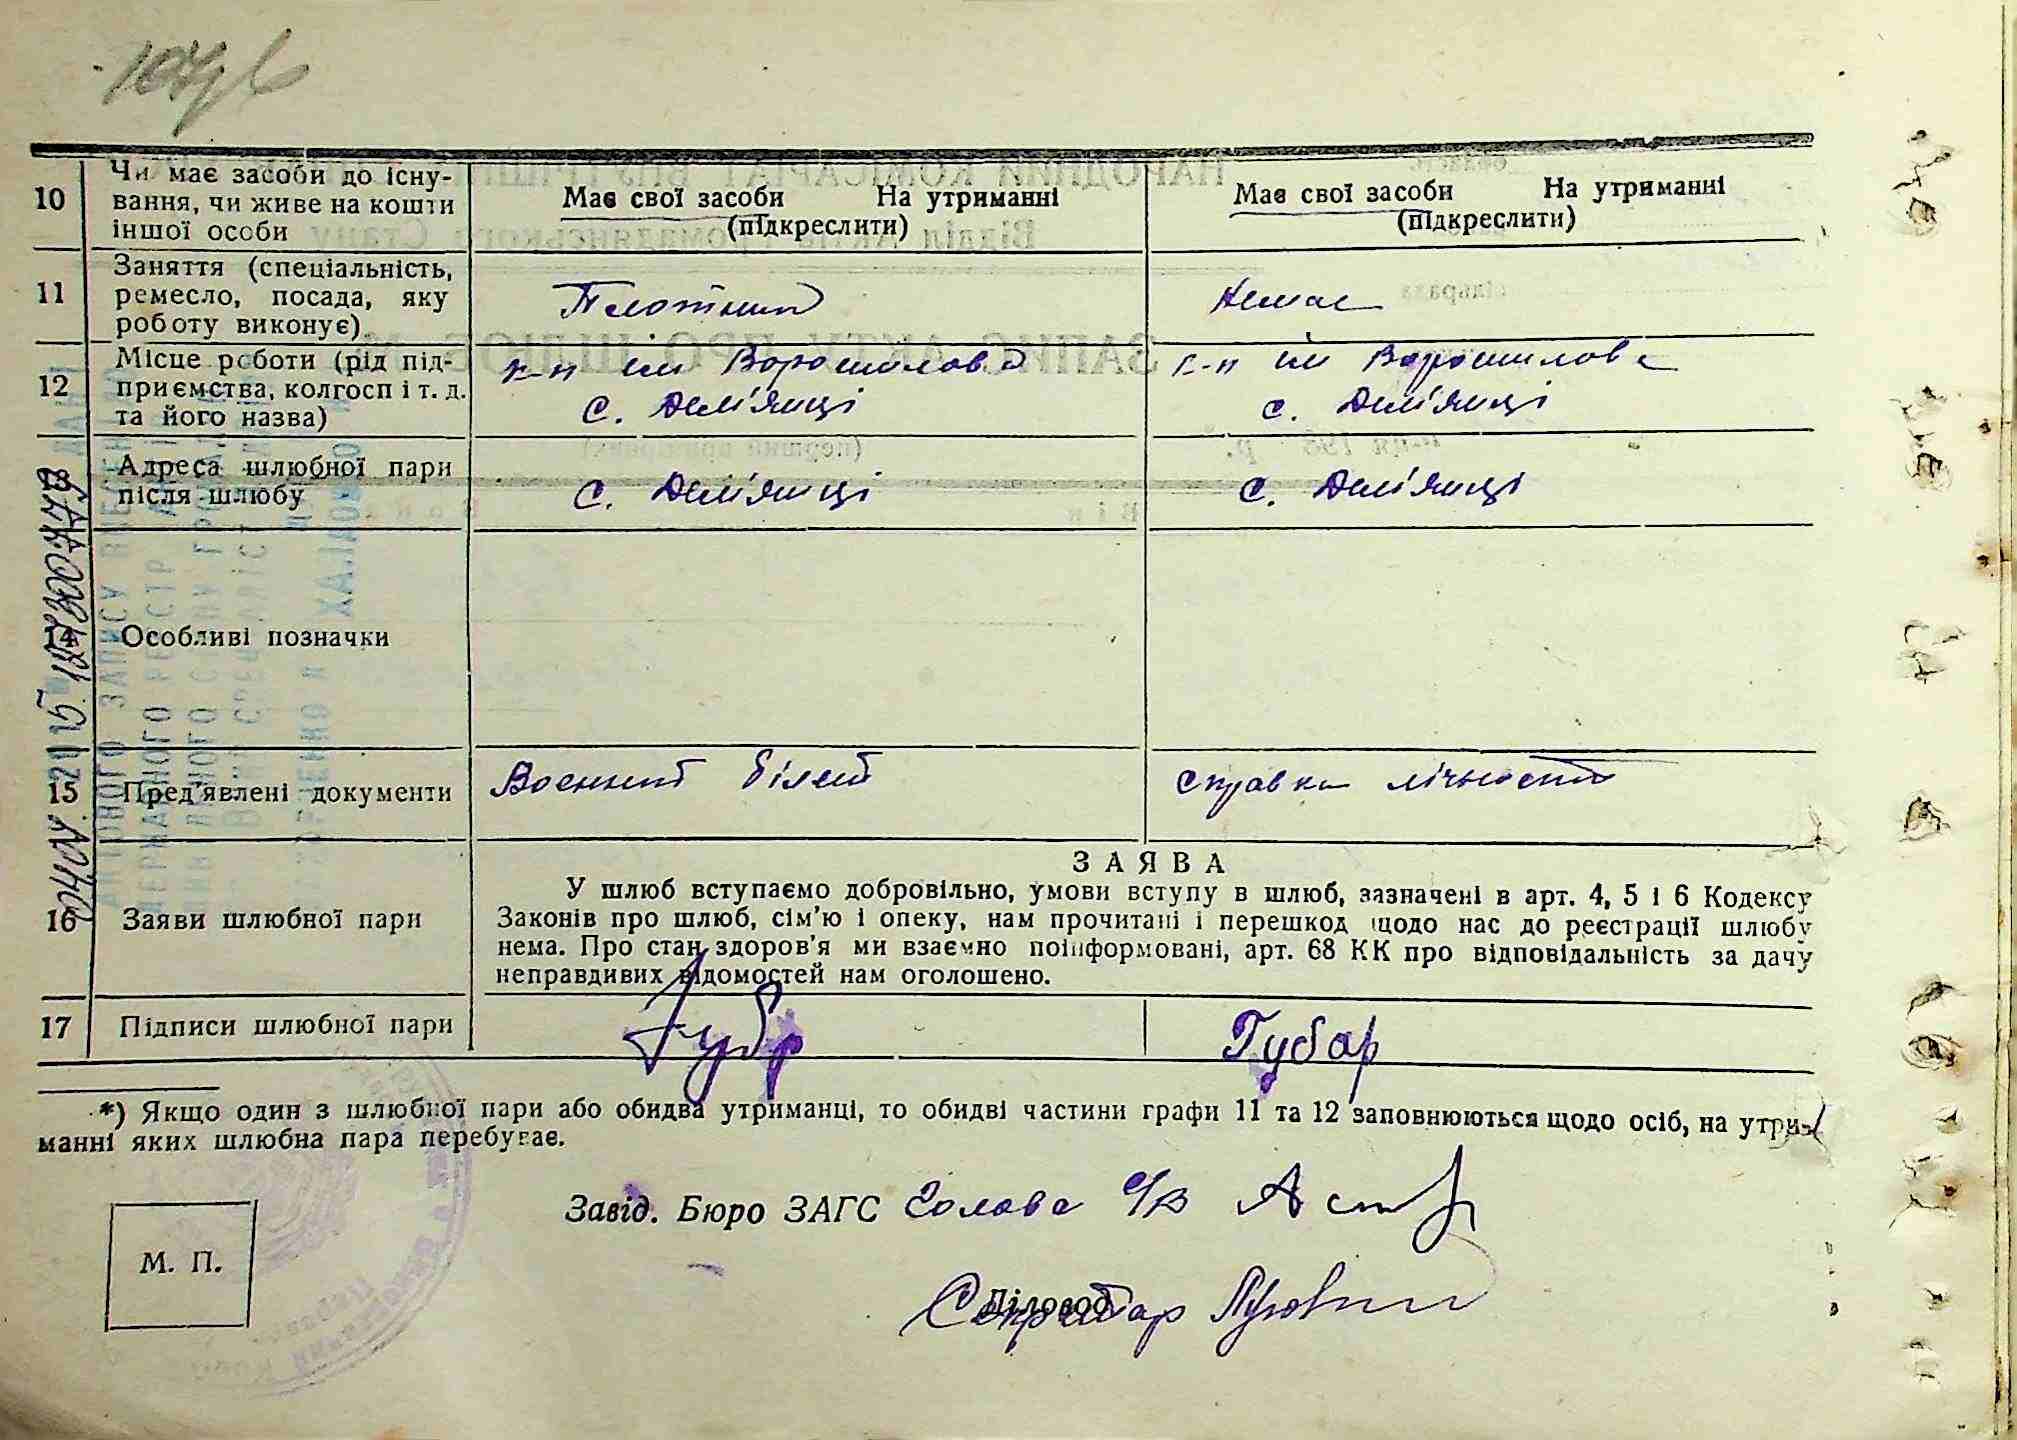 10
Чи має засоби до існу-
вання, чи живе на кошти
іншої особи
Має свої засоби На утриманні
(підкреслити)
Має свої засоби На утриманні
(підкреслити)
11
Заняття (спеціальність,
ремесло, посада, яку
роботу виконує)
Плотник
Немає
12
Місце роботи (рід під-
приємства, колгосп і т. д.
та його назва)
к-п ім Ворошилова
с. Дем'янці
к-п ім Ворошилова
с. Дем'янці
13
Адреса шлюбної пари
після шлюбу
с. Дем'янці
с. Дем'янці
14
Особливі позначки
15
Пред'явлені документи
Воєнний білет
Справка лічности
16
Заяви шлюбної пари
ЗАЯВА
У шлюб вступаємо добровільно, умови вступу в шлюб, зазначені в арт. 4, 5 і 6 Кодексу
Законів про шлюб, сім'ю і опеку, нам прочитані і перешкод щодо нас до реєстрації шлюбу
нема. Про стан здоров'я ми взаємно поінформовані, арт. 68 КК про відповідальність за дачу
неправдивих відомостей нам оголошено.
17
Підписи шлюбної пари
Губар
*) Якщо один з шлюбної пари або обидва утриманці, то обидві частини графи 11 та 12 заповнюються щодо осіб, на утри-
манні яких шлюбна пара перебуває.
Завід. Бюро ЗАГС Голова с/в
М. П.
Діловод
Секретар